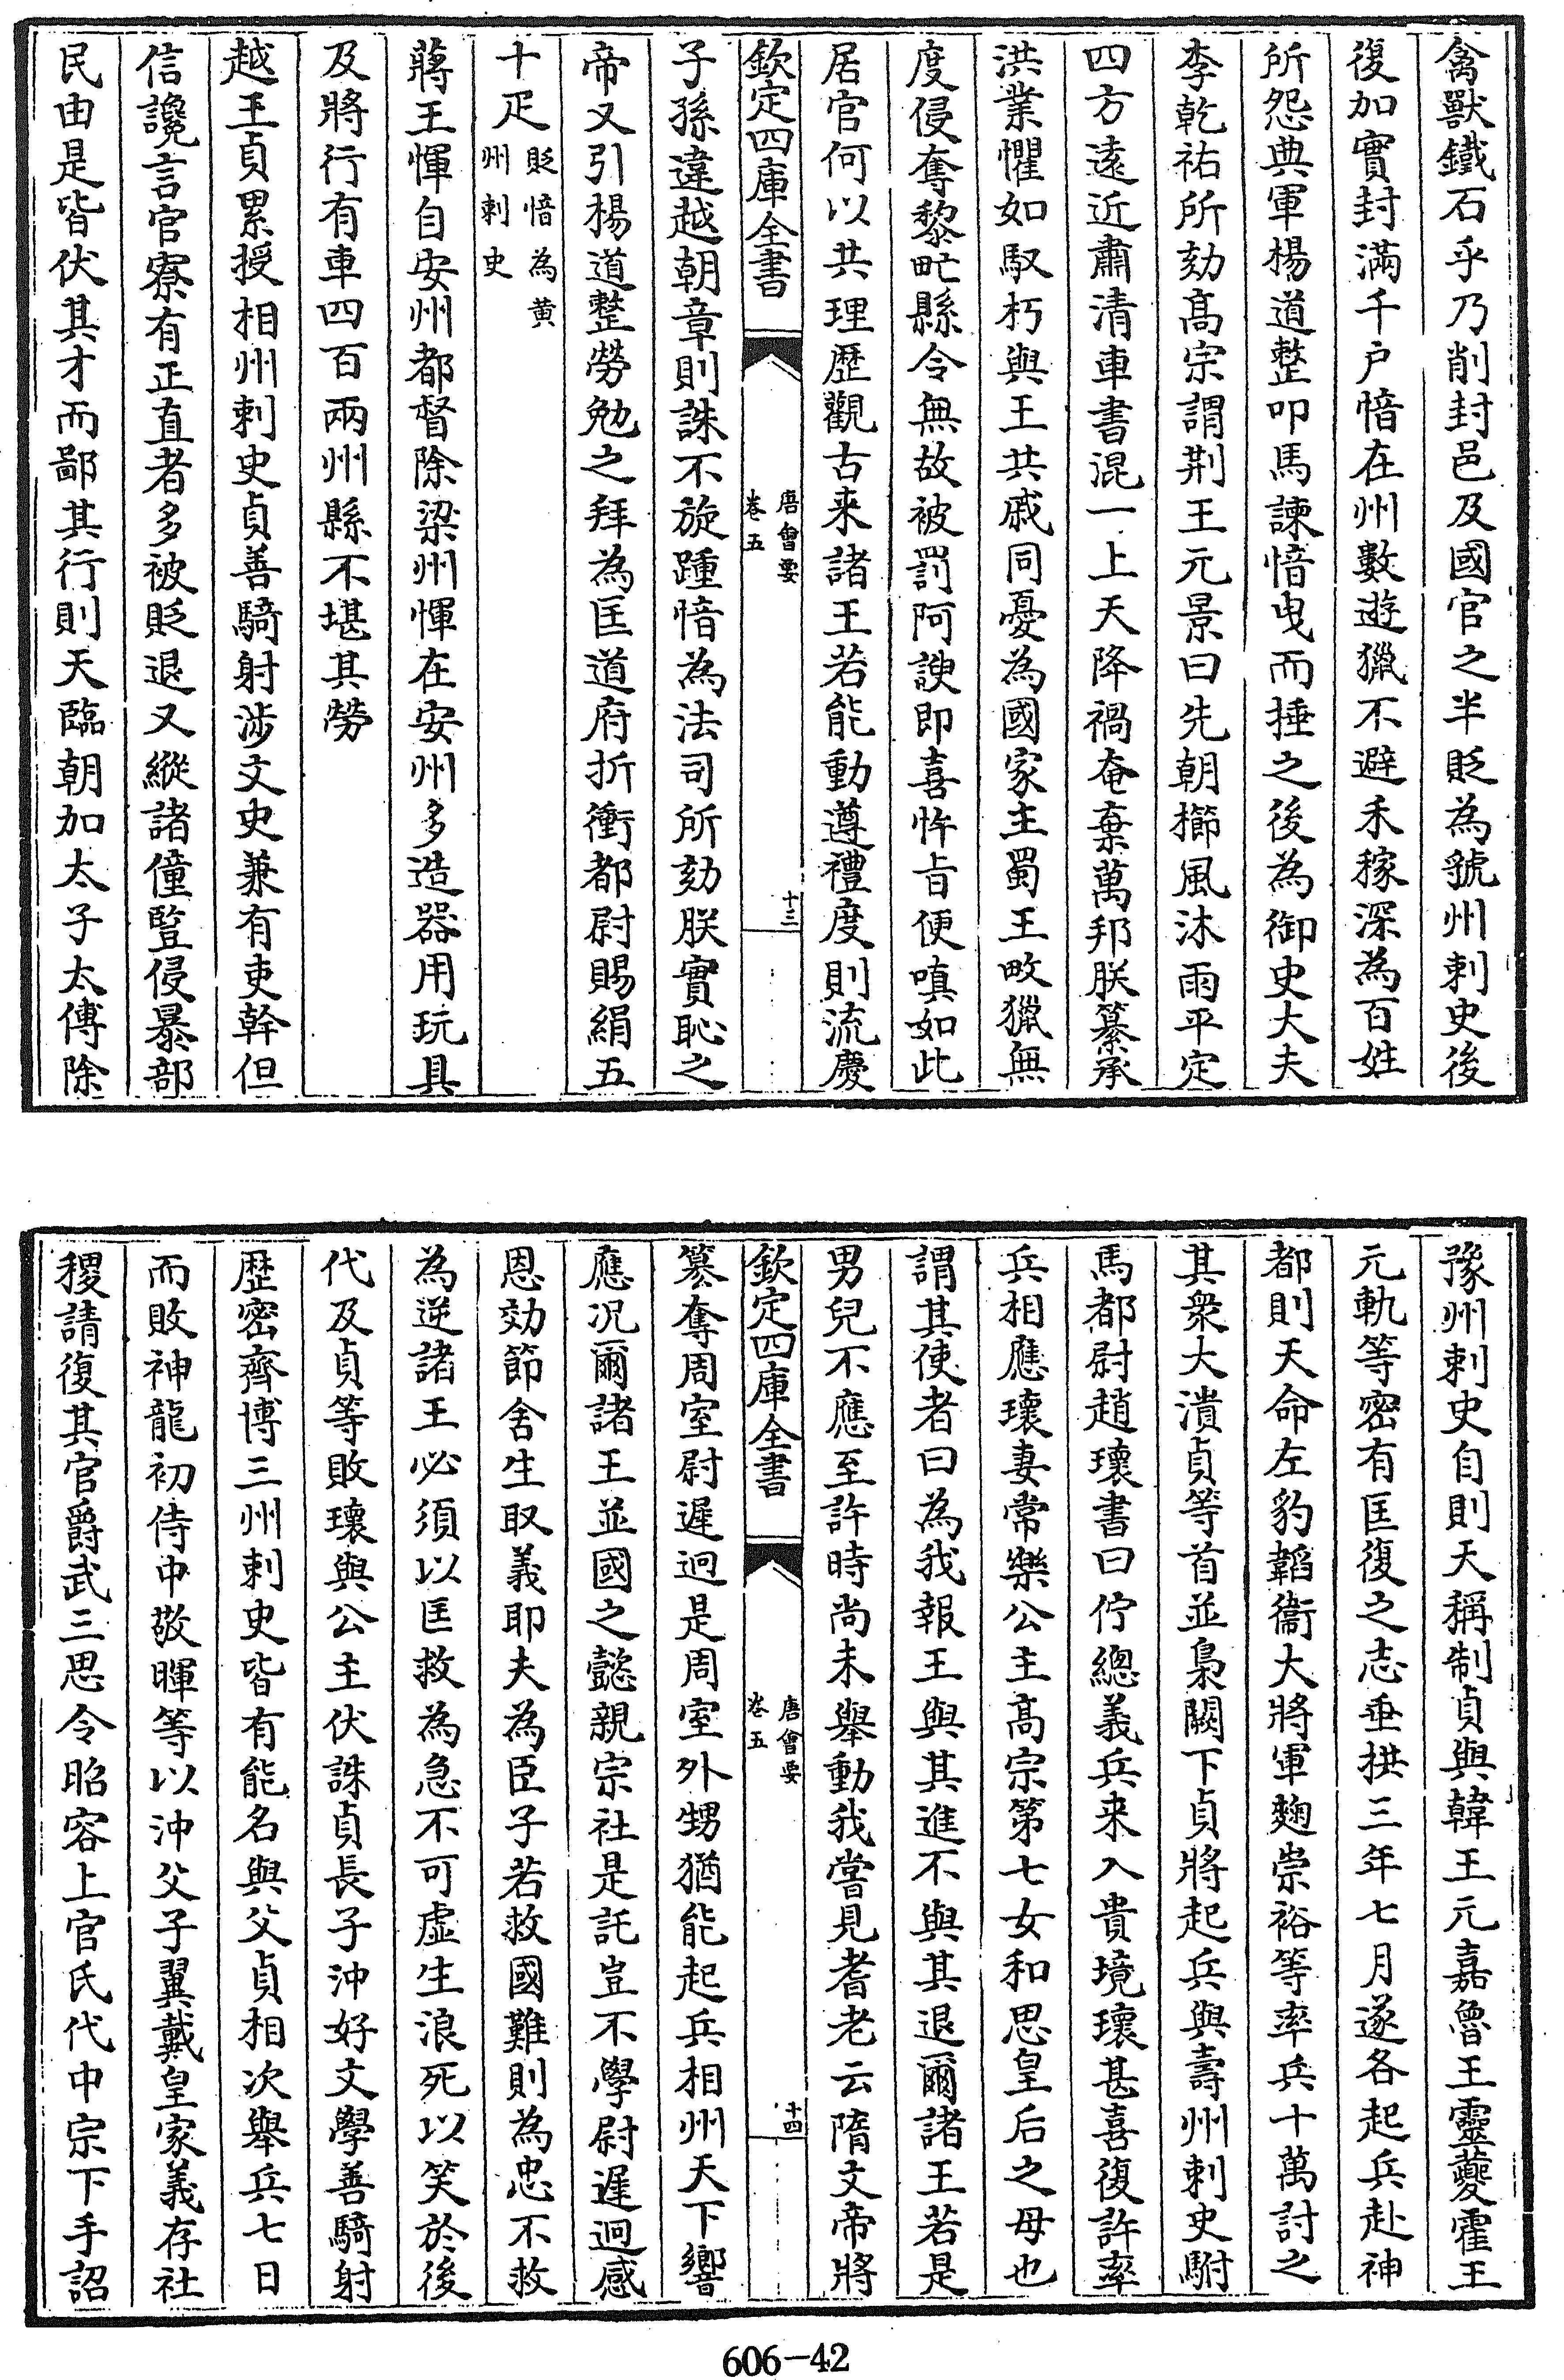 禽獸鐵石乎乃削封邑及國官之半貶為虢州刺史後
復加實封滿千户愔在州數遊獵不避禾稼深為百姓
所怨典軍楊道整叩馬諫愔曳而捶之後為御史大夫
李乾祐所劾高宗謂荆王元景曰先朝櫛風沐雨平定
四方遠近肅清車書混一上天降禍奄棄萬邦朕纂承
洪業懼如馭朽與王共戚同憂為國家主蜀王畋獵無
度侵奪黎甿縣令無故被罰阿諛即喜忤㫖便嗔如此
居官何以共理歴觀古来諸王若能動遵禮度則流慶
欽定四庫全書
唐會要
卷五
十三
子孫違越朝章則誅不旋踵愔為法司所劾朕實恥之
帝又引楊道整勞勉之拜為匡道府折衝都尉賜絹五
十疋
貶愔為黄
州刺史
蔣王惲自安州都督除梁州惲在安州多造器用玩具
及將行有車四百兩州縣不堪其勞
越王貞累授相州刺史貞善騎射涉文史兼有吏幹但
信讒言官寮有正直者多被貶退又縱諸僮豎侵暴部
民由是皆伏其才而鄙其行則天臨朝加太子太傅除
豫州刺史自則天稱制貞與韓王元嘉魯王靈夔霍王
元軌等密有匡復之志垂拱三年七月遂各起兵赴神
都則天命左豹韜衞大將軍麴崇裕等率兵十萬討之
其衆大潰貞等首並梟闕下貞將起兵與壽州刺史駙
馬都尉趙瓌書曰佇總義兵来入貴境瓌甚喜復許率
兵相應瓌妻常樂公主高宗第七女和思皇后之母也
謂其使者曰為我報王與其進不與其退爾諸王若是
男兒不應至許時尚未舉動我嘗見耆老云隋文帝將
欽定四庫全書
唐會要
卷五
十四
簒奪周室尉遲迥是周室外甥猶能起兵相州天下響
應况爾諸王並國之懿親宗社是託豈不學尉遲迥感
恩効節舍生取義耶夫為臣子若救國難則為忠不救
為逆諸王必須以匡救為急不可虚生浪死以笑於後
代及貞等敗瓌與公主伏誅貞長子沖好文學善騎射
歴密齊博三州刺史皆有能名與父貞相次舉兵七日
而敗神龍初侍中敬暉等以沖父子翼戴皇家義存社
稷請復其官爵武三思令昭容上官氏代中宗下手詔
606-42